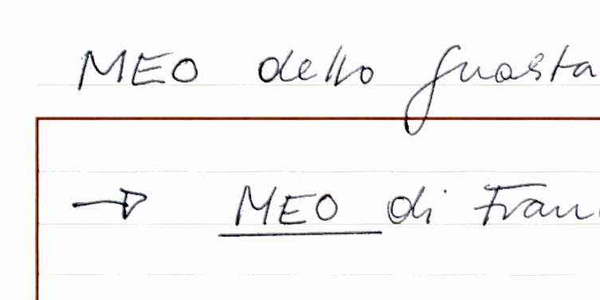 MEO dello guasta
→ MEO di Fran